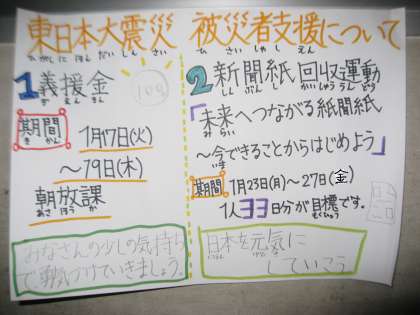 東日本大震災 被災者支援について
ひがしにほんだいしんさい ひさいしゃしえん
1 義援金
ぎえんきん
100
期間
きかん
1月17日(火)
～19日(木)
朝放課
あさほうか
みなさんの少しの気持ち
で勇気づけていきましょう。
2 新聞紙回収運動
しんぶんしかいしゅううんどう
「未来へつながる新聞紙
みらい しんぶんし
～今できることからはじめよう」
いま
期間 1月23日(月)～27日(金)
きかん
1人33日分が目標です。
もくひょう
日本を元気に
にほん げんき
していこう